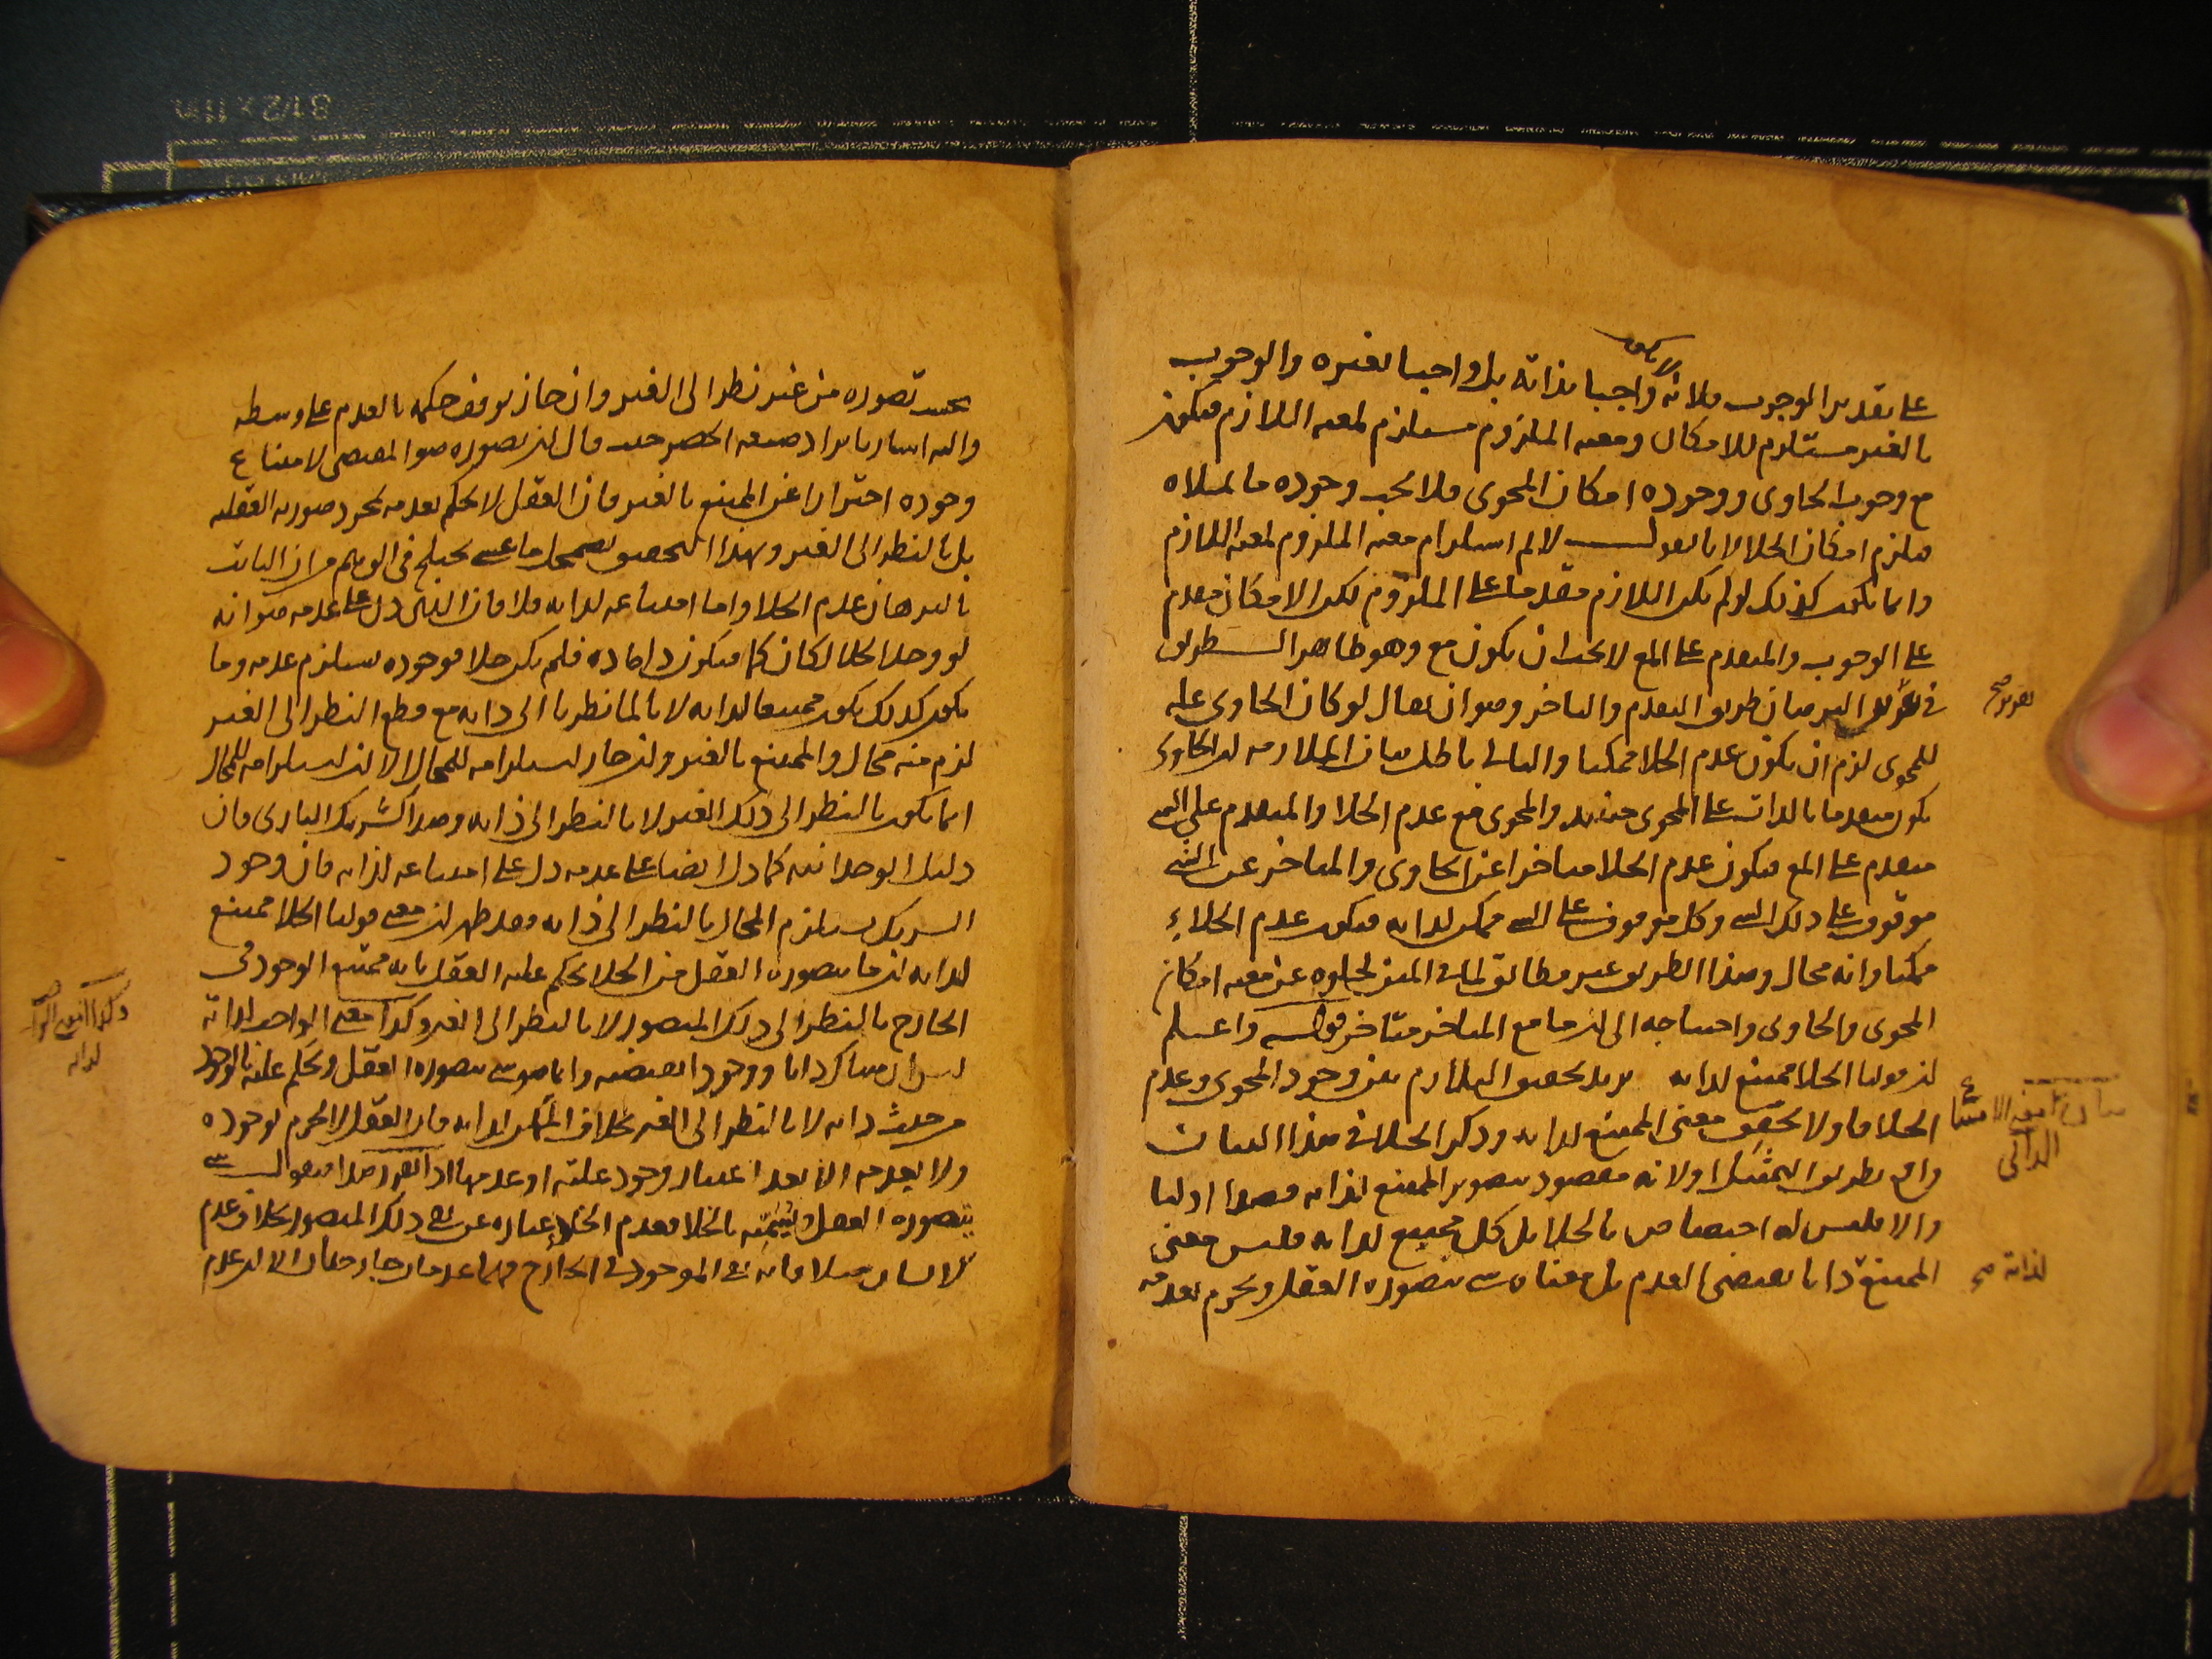 على تقدير الوجوب فلانه لا يكون واجبا بذاته بل واجبا بغيره والوجوب
بالغير مستلزم للامكان ومعية الملزوم مستلزم لمعية اللازم فيكون
مع وجوب الحاوى ووجوده امكان المحوى فلا يجب وجوده ما يملاه
فيلزم امكان الخلا لانا نقول لا نم استلزام معية الملزوم لمعية اللازم
وانما يكون كذلك لو لم يكن اللازم مقدما على الملزوم لكن الامكان مقدم
على الوجوب والمتقدم على المع لا يجب ان يكون مع وهو ظاهر الطريق
فى تقرير البرهان طريق التقدم والتاخر وهو ان يقال لو كان الحاوى علة
للمحوى لزم ان يكون عدم الخلا ممكنا والتالى باطل بيان الملازمه ان الحاوى
يكون متقدما بالذات على المحوى حينئذ والمحوى مع عدم الخلا والمتقدم على الشى
متقدم على المع فيكون عدم الخلا متاخرا عن الحاوى والمتاخر عن الشى
موقوف على ذلك الشى وكل موقوف على الشى ممكن لذاته فيكون عدم الخلاء
ممكنا وانه محال وهذا الطريق غير مطابق لما فى المتن لخلوه عن معية امكان
المحوى والحاوى واحتياجه الى ان ما مع المتاخر متاخر قوله واعلم
ان قولنا الخلا ممتنع لذاته يريد تحقيق التلازم بين وجود المحوى وعدم
الخلا ولا تحقق معنى الممتنع لذاته وذكر الخلا فى هذا البيان
واقع بطريق التمثيل ولانه مقصود بتصوير الممتنع لذاته قصدا اوليا
والا فليس له اختصاص بالخلا بل كل ممتنع لذاته فليس معنى
الممتنع ذاتا يقتضى العدم بل معناه شى يتصوره العقل ويجزم بعدمه
تقرير صح
بيان معنى الامتناع
الذاتى
لذاته صح
بحسب تصوره من غير نظر الى الغير وان جاز توقف حكمه بالعدم على وسط
واليه اشار بايراد صيغة الحصر حيث قال ان تصوره هو المقتضى لامتناع
وجوده احترازا عن الممتنع بالغير فان العقل لا يحكم بعدمه بمجرد صورته العقلية
بل بالنظر الى الغير وبهذا التحقيق يضمحل ما عسى يختلج فى الوهم من ان الثابت
بالبرهان عدم الخلا واما امتناعه لذاته فلا فان الذى دل على عدمه هو انه
لو وجد الخلا لكان كما فيكون ذا مادة فلم يكن خلا فوجوده يستلزم عدمه وما
يكون كذلك يكون ممتنعا لذاته لانا لما نظرنا الى ذاته مع قطع النظر الى الغير
لزم منه محال والممتنع بالغير وان جاز استلزامه للمحال الا ان استلزامه للمحال
انما يكون بالنظر الى ذلك الغير لا بالنظر الى ذاته وهذا كشريك البارى فان
دليل الوحدانية كما دل ايضا على عدمه دل على امتناعه لذاته فان وجود
الشريك يستلزم المحال بالنظر الى ذاته فقد ظهر ان معنى قولنا الخلا ممتنع
لذاته ان ما يتصوره العقل من الخلا يحكم عليه العقل بانه ممتنع الوجود فى
الخارج بالنظر الى ذلك المتصور لا بالنظر الى الغير وكذا معنى الواجب لذاته
ليس ان هناك ذاتا ووجودا تقتضيه وانما هو شى يتصوره العقل ويحكم عليه بالوجود
من حيث ذاته لا بالنظر الى الغير بخلاف الممكن لذاته فان العقل لا يجزم بوجوده
ولا بعدمه الا بعد اعتبار وجود علته او عدمها اذا تقرر هذا فنقول شى
يتصوره العقل ونسميه بالخلا فعدم الخلا عبارة عن نفى ذلك المتصور بخلاف عدم
الانسان مثلا فانه نفى الموجود فى الخارج فهما عدمان خارجيان الا ان عدم
ذكر معنى الواجب
لذاته